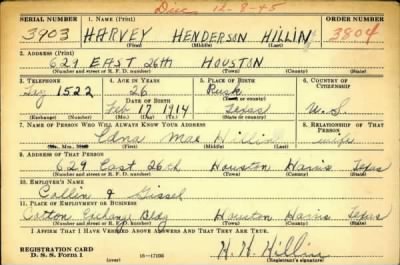 Disc. 12-8-45
SERIAL NUMBER 1. NAME (Print) ORDER NUMBER
3903 HARVEY HENDERSON HILLIN 3804
(First) (Middle) (Last)
2. ADDRESS (Print)
629 EAST 26TH HOUSTON
(Number and street or R. F. D. number) (Town) (County) (State)
3. TELEPHONE 4. AGE IN YEARS 5. PLACE OF BIRTH 6. COUNTRY OF CITIZENSHIP
1522 26 Rusk
DATE OF BIRTH (Town or county)
Feb 17 1914 Texas U.S.
(Exchange) (No.) (Mo.) (Day) (Yr.) (State or country)
7. NAME OF PERSON WHO WILL ALWAYS KNOW YOUR ADDRESS 8. RELATIONSHIP OF THAT PERSON
Edna Mae Hillin wife
(Mr., Mrs., Miss) (First) (Middle) (Last)
9. ADDRESS OF THAT PERSON
629 East 26th Houston Harris Texas
(Number and street or R. F. D. number) (Town) (County) (State)
10. EMPLOYER'S NAME
Collin & Gissel
11. PLACE OF EMPLOYMENT OR BUSINESS
Cotton Exchange Bldg Houston Harris Texas
(Number and street or R. F. D. number) (Town) (County) (State)
I AFFIRM THAT I HAVE VERIFIED ABOVE ANSWERS AND THAT THEY ARE TRUE.
REGISTRATION CARD H. H. Hillin
D. S. S. Form 1 (over) (Registrant's signature)